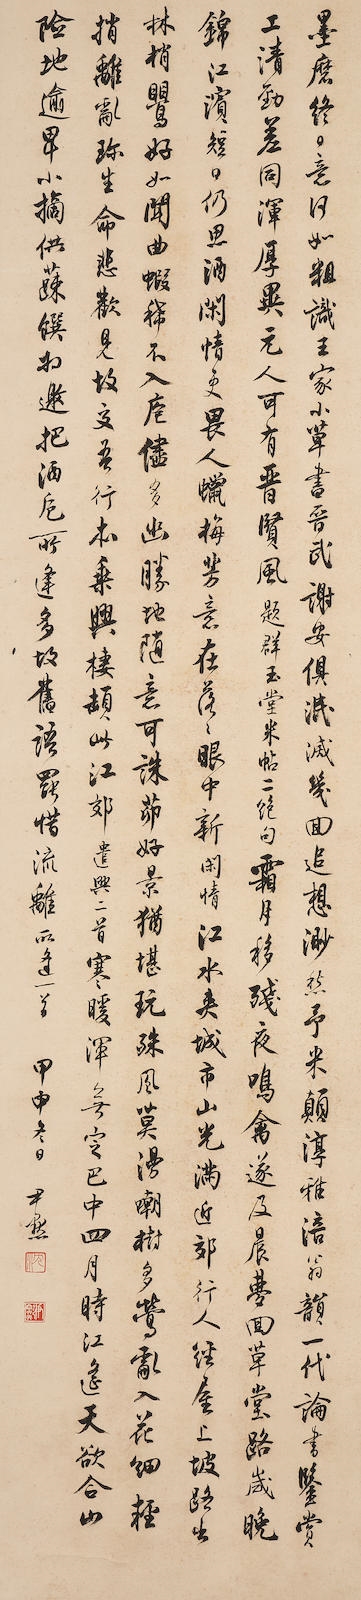 墨磨終日意何如粗識王家小草書晉武謝安俱泯滅幾回追想渺愁予米顛淳雅涪翁韻一代論書鑒賞
工清勁差同渾厚異元人可有晉賢風題群玉堂米帖二絕句霜月移殘夜鳴禽遂及晨夢回草堂路歲晚
錦江濱短日仍思酒閑情更畏人蠟梅芳意在落落眼中新閑情江水夾城市山光滿近郊行人經屋上坡路出
林梢鷃好如聞曲蝦稀不入庖儘多幽勝地隨意可誅茆好景猶堪玩殊風莫漫嘲樹多鶯亂入花細輕
捎離亂珍生命悲歡見故交吾行本乘興棲頡此江郊遣興二首寒暖渾無定巴中四月時江遙天欲合山
險地逾卑小摘供蔬饌相邀把酒卮所逢多故舊語罷惜流離所逢一首 甲申冬日 尹默